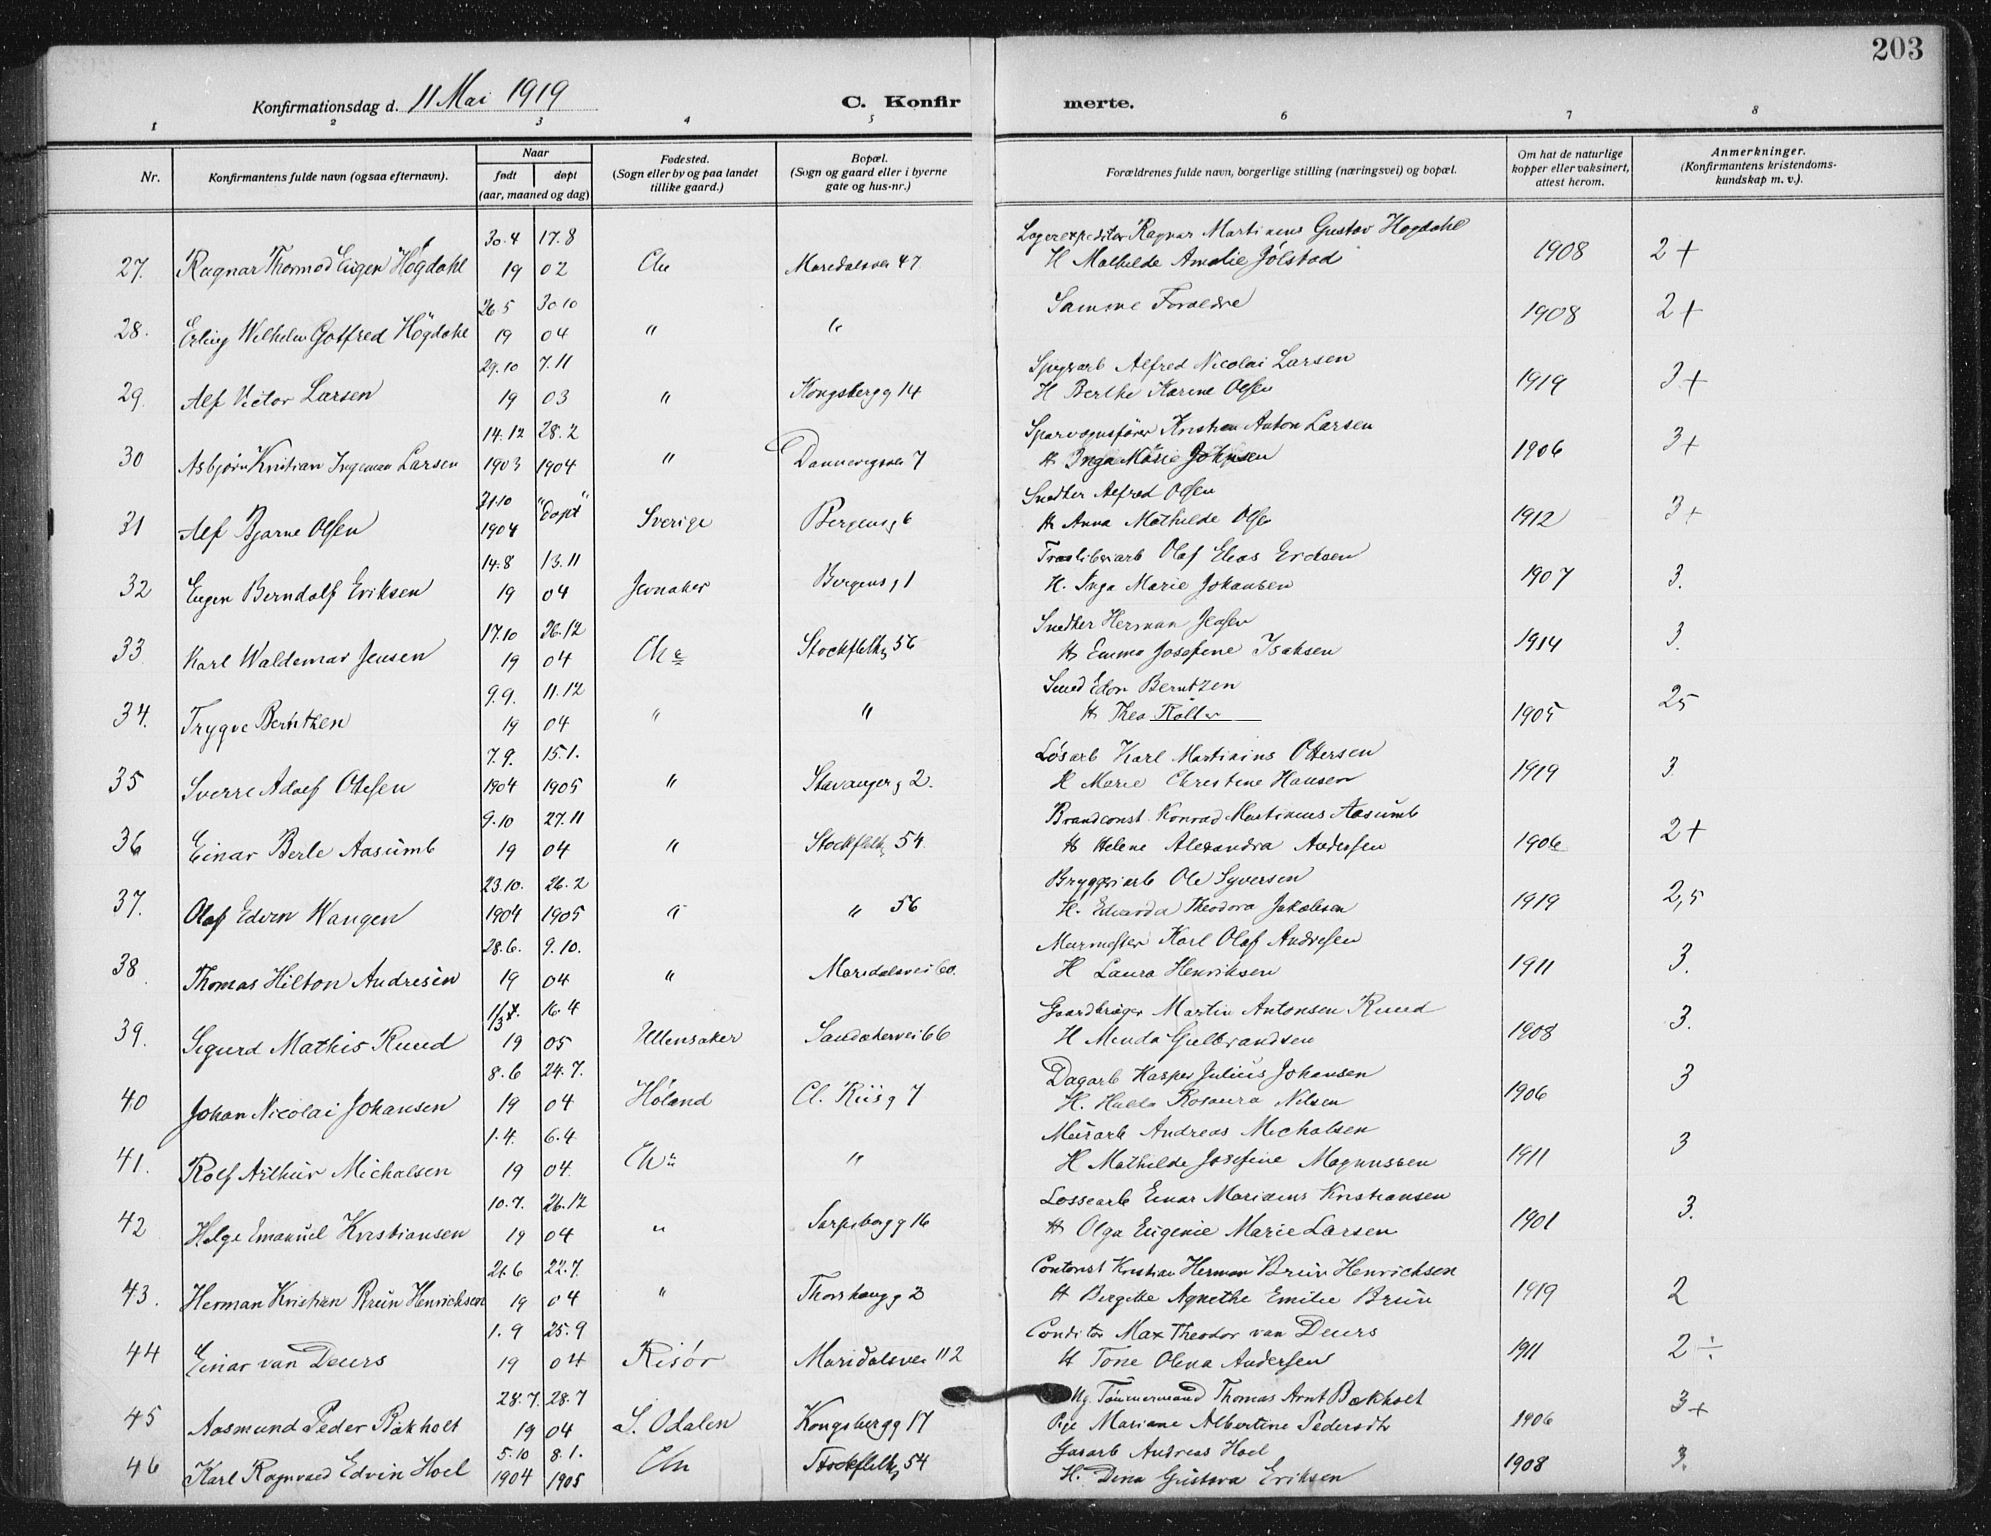 203
Konfirmationsdag d. 11 Mai 1919 C. Konfir merte.
1 2 3 4 5 6 7 8
Nr. Konfirmantens fulde navn (ogsaa efternavn). Naar født døpt (aar, maaned og dag) Fødested. (Sogn eller by og paa landet tillike gaard.) Bopæl. (Sogn og gaard eller i byerne gate og hus-nr.) Forældrenes fulde navn, borgerlige stilling (næringsvei) og bopæl. Om hat de naturlige kopper eller vaksinert, attest herom. Anmerkninger. (Konfirmantens kristendomskundskap m. v.).
30.4 17.8 Lagerexpeditør Ragnar Martinius Gustav Høgdahl
27. Ragnar Thormod Eugen Høgdahl 19 02 Chr Maridalsvei 47 H Mathilde Amalie Jølstad 1908 2+
26 5 30 10 Samme Forældre
28. Erling Wilhelm Gotfred Høgdahl 19 04 " " 1908 2+
29.10 7.11 Alfred Nicolai Larsen
29. Alf Victor Larsen 19 03 " Kongsbergg 14 H Berthe Karine Olsen 1919 3+
14.12 28.2 Sporvognsfører Kristian Anton Larsen
30 Asbjørn Kristian Ingeman Larsen 1903 1904 " Dannevigsvei 7 H Inga Marie Johnsen 1906 3+
31.10 "døpt" Snedker Alfred Olsen
31 Alf Bjarne Olsen 1904 Sverige Bergensg 6 H Anna Mathilde Olsen 1912 3+
14.8 13.11 Træsliberiarb Olaf Elias Ericksen
32 Eugen Berndolf Eriksen 19 04 Jevnaker Bergensg 1 H. Inga Marie Johansen 1907 3.
17.10 26.12 Snedker Herman Jensen
33 Karl Waldemar Jensen 19 04 Chr Stockflethg 56 H Emma Josefine Isaksen 1914 3.
9.9. 11.12 Smed Edor Berntzen
34. Trygve Berntzen 19 04 " " H Thea 1905 25
7.9. 15.1. Løsarb Karl Martinius Ottersen
35 Sverre Adolf Ottesen 1904 1905 " Stavangerg 2. H Marie Christine Hansen 1919 3
9.10 27.11 Brandconst. Konrad Martinius Aasumb
36 Einar Berle Aasumb 19 04 " Stockflethg 54. H Helene Alexandra Andersen 1906 2+
23.10. 26.2 Bryggeriarb Ole Syversen
37. Olaf Edvin Wangen 1904 1905 " " 56 H. Edvarda Theodora Jakobsen 1919 2,5
28.6. 9.10. Murmester Karl Olaf Andresen
38. Thomas Hilton Andresen 19 04 " Maridalsvei 60. H Laura Henriksen 1911 3.
16.4 Gaardbruger Martin Antonsen Ruud
39. Sigurd Mathis Ruud 19 05 Ullensaker Sandakervei 66 H Minda Gulbrandsen 1908 3.
8.6 24.7. Dagarb Kasper Julius Johansen
40 Johan Nicolai Johansen 19 04 Høland Cl. Riisg 7 H. Hulda Rosaura Nilsen 1906 3
1.4. 6.4. Murarb Andreas Michalsen
41. Rolf Arthur Michalsen 19 04. Chr " H Mathilde Josefine Magnussen 1911 3
10.7. 26.12 Lossearb Einar Marinius Kristiansen
42 Helge Emanuel Kristiansen 19 04 " Sarpsborgg 16 H Olga Eugenie Marie Larsen 1901 3.
21.6 22.7. Contorist Kristian Herman Brun Henrichsen
43. Herman Kristian Brun Henrichsen 19 04 " Thorshaugg 2 H Birgitte Agnethe Emilie Brun 1919 2
1.9 25.9 Conditor Max Theodor van Deurs
44 Einar van Deurs 19 04 Risør Maridalsvei 112 H Tone Olena Andersen 1911 2÷
28.7. 28.7 Ug. Tømmermand Thomas Arnt Bakholt
45 Aasmund Peder Bakholt 19 04 S. Odalen Kongsbergg 17 Pige Mariane Albertine Pedersdtr 1906 3+
5.10 8.1. Gasarb Andreas Hoel
46 Karl Ragnvald Edvin Hoel 1904 1905 Chr Stockflethg 54 H. Dina Gustava Eriksen 1908 3.